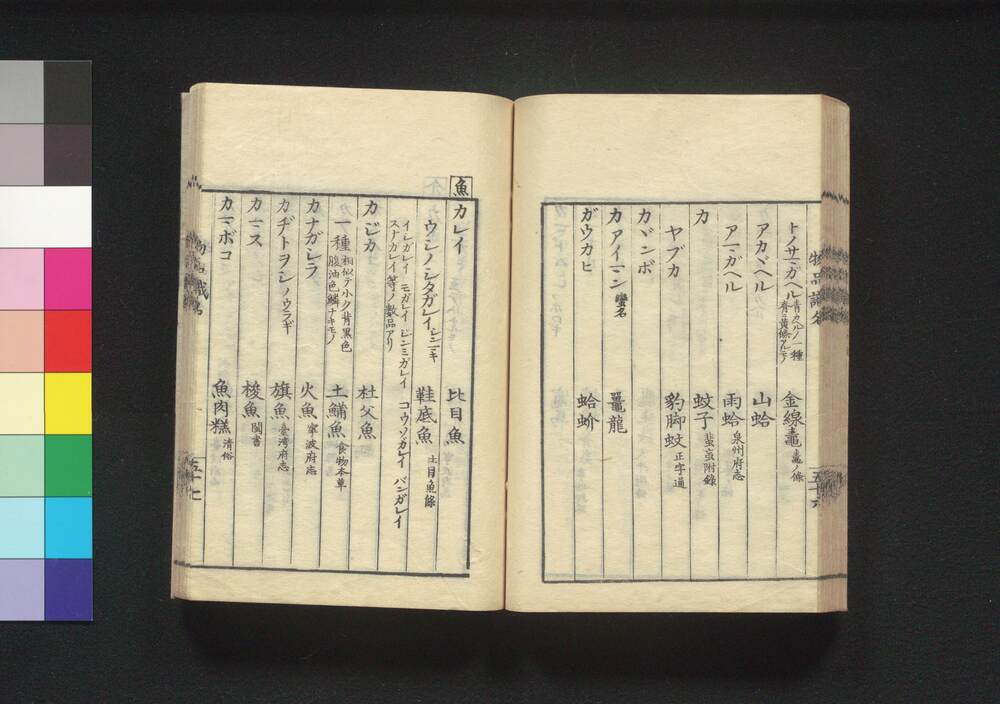 トノサマガヘル 青カヘルノ一種有黄條アルモノ 金線鼃 鼃ノ條
アカヾヘル 山蛤
アマガヘル 雨蛤 泉州府志
カ 蚊子 蜚䖟附錄
ヤブカ 豹脚蚊 正字通
カヾンボ
カアイマン 蠻名 鼉龍
ガウカヒ 蛤蚧
物品識名
五十六
魚
カレイ 比目魚
ウシノシタガレイ 鞋底魚 比目魚條
イシガレイ モガレイ コウゾウガレイ バンガレイ
スナガレイ等ノ数品アリ
カジカ 杜父魚
一種 相似テ小ク背黒色腹油色鱗ナキモノ 土鯆魚 食物本草
カナガシラ 火魚 寧波府志
カヂトヲシ ノウラギ 旗魚 臺湾府志
カマス 梭魚 閩書
カマボコ 魚肉糕 清俗
五十七